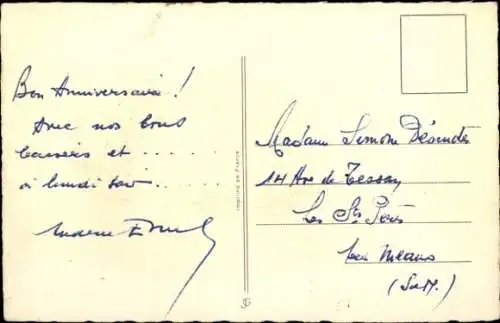 Bon Anniversaire !
Avec nos bons
baisers et . . . . . .
à lundi soir . . . . . .
Imprimé en France
Madame Simone
14 Ave de Tessan
Les Sts Pères
par Meaux
(S&M.)